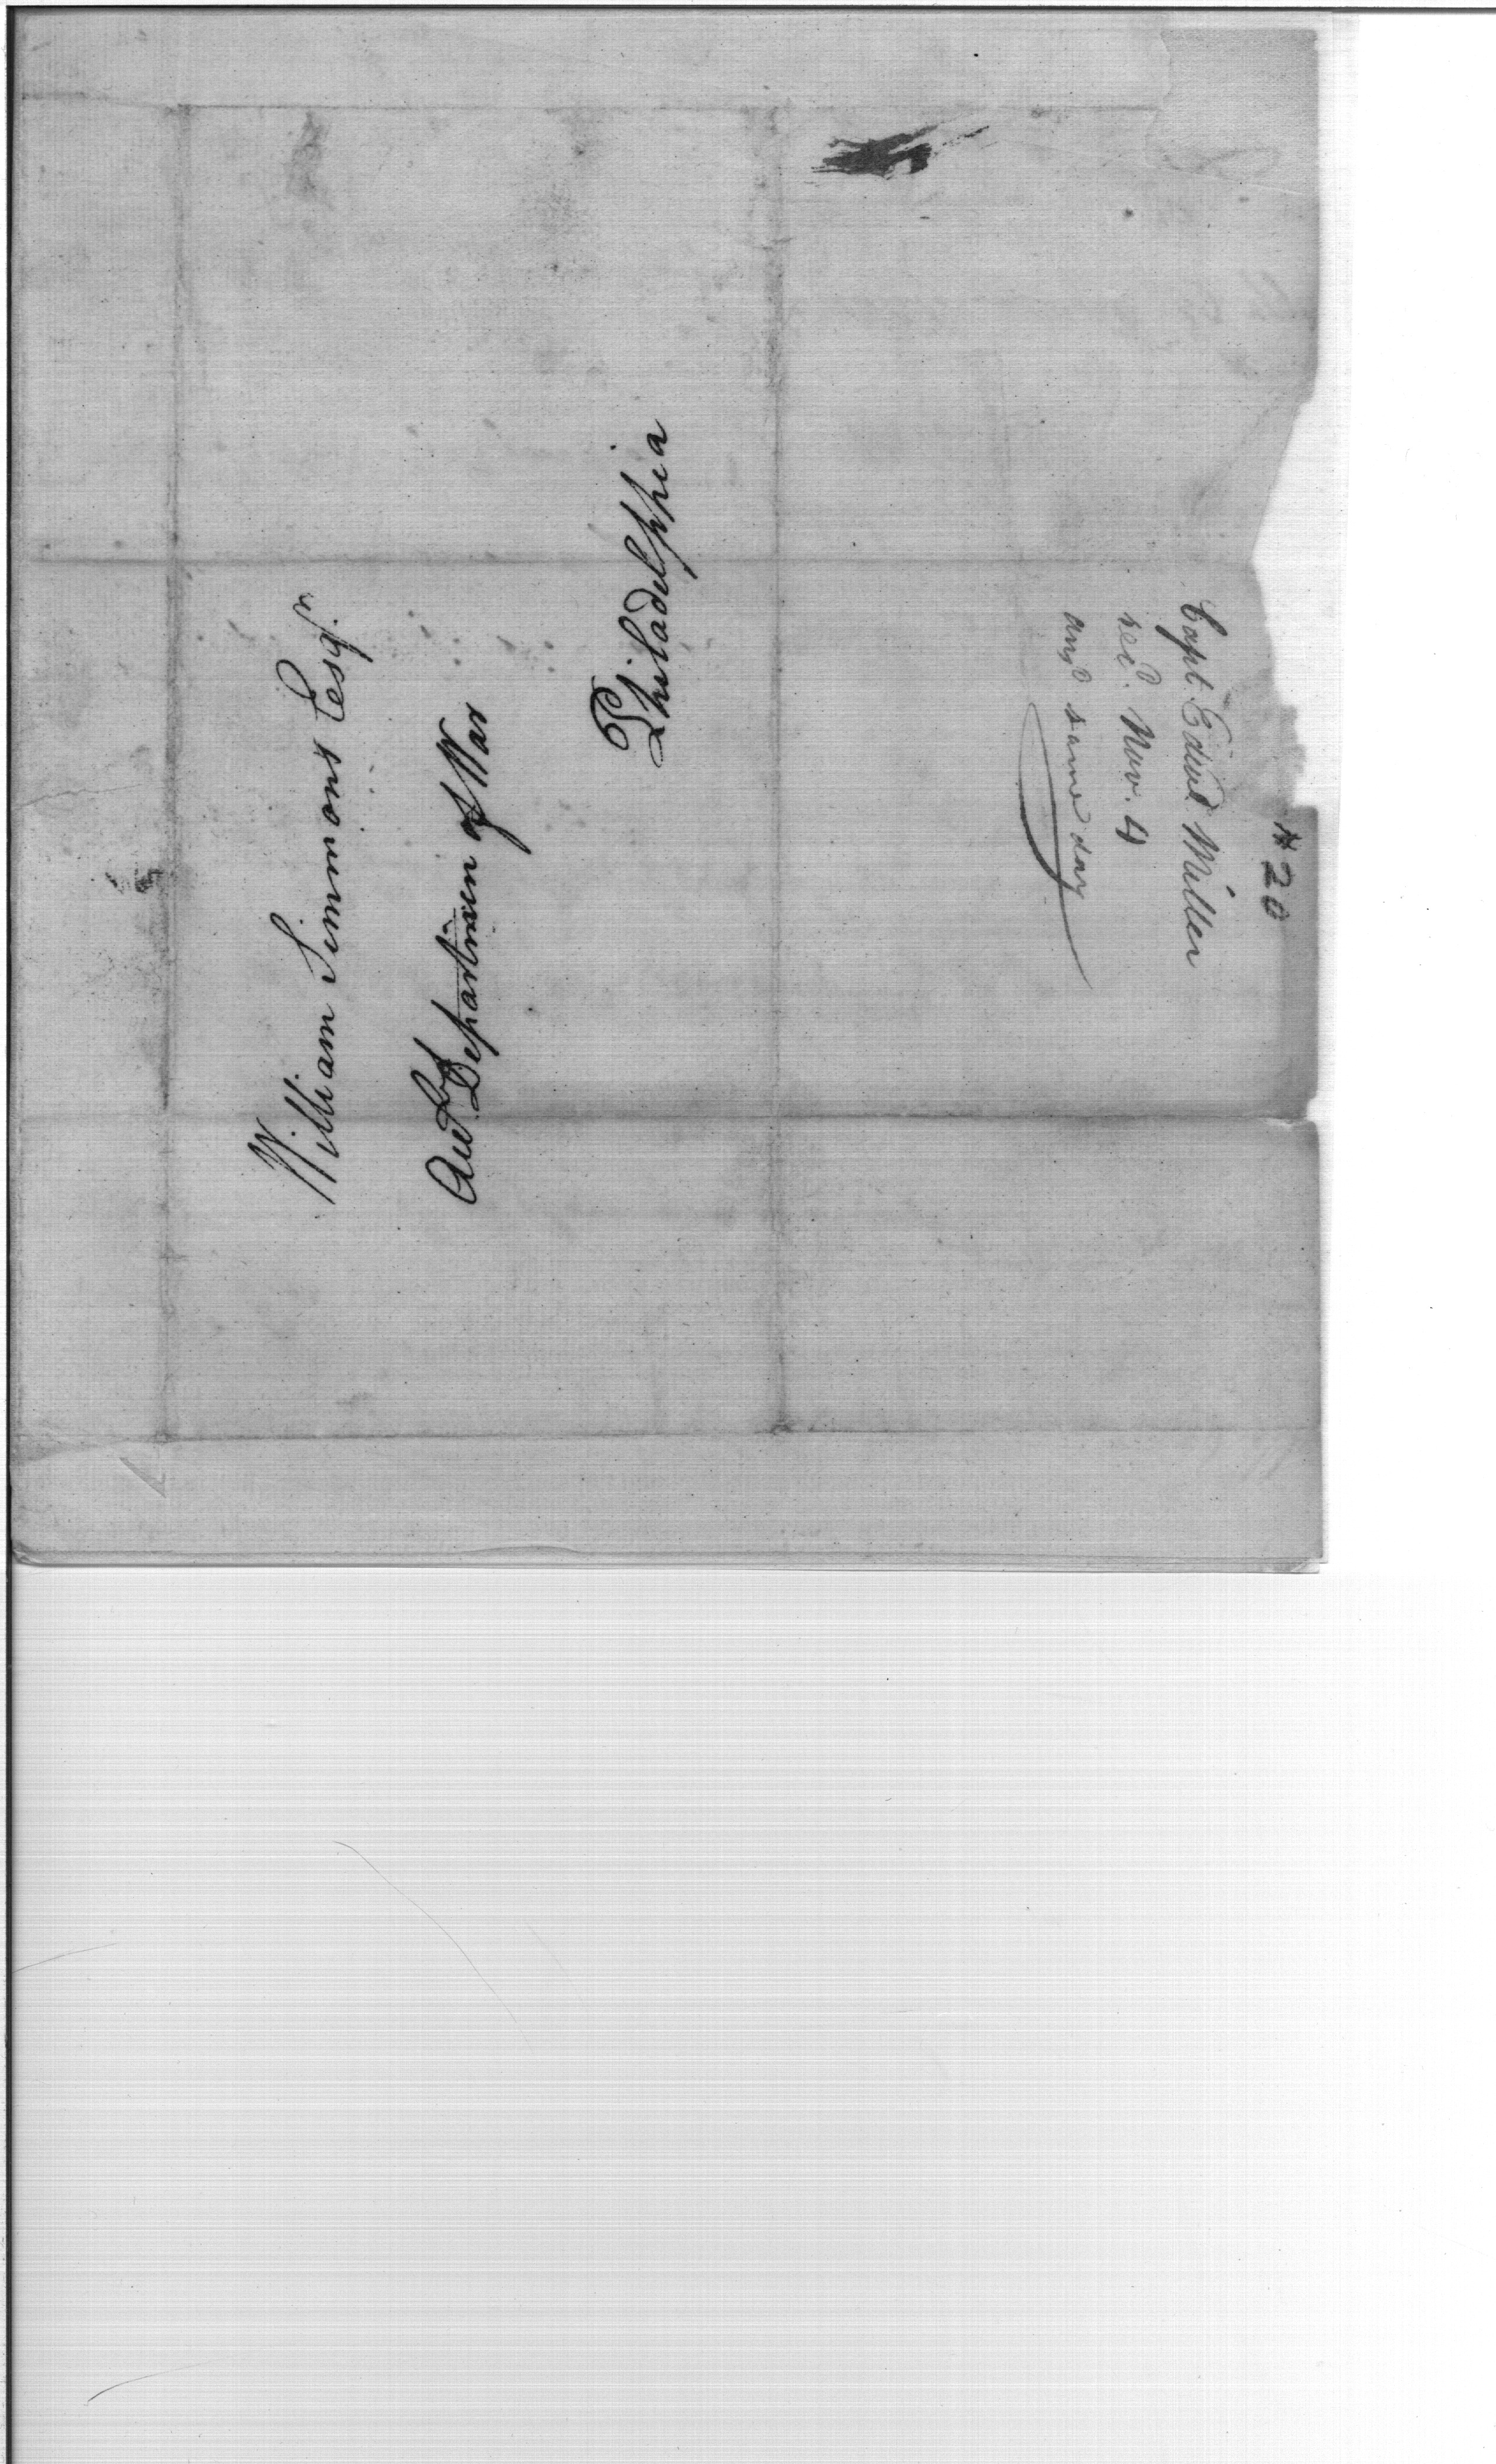 William Simmons Esqr.
Acct. Departmen of War
Philadelphia
#20
Capt. Edwd. Miller
recd. Nov. 4
ansd same day